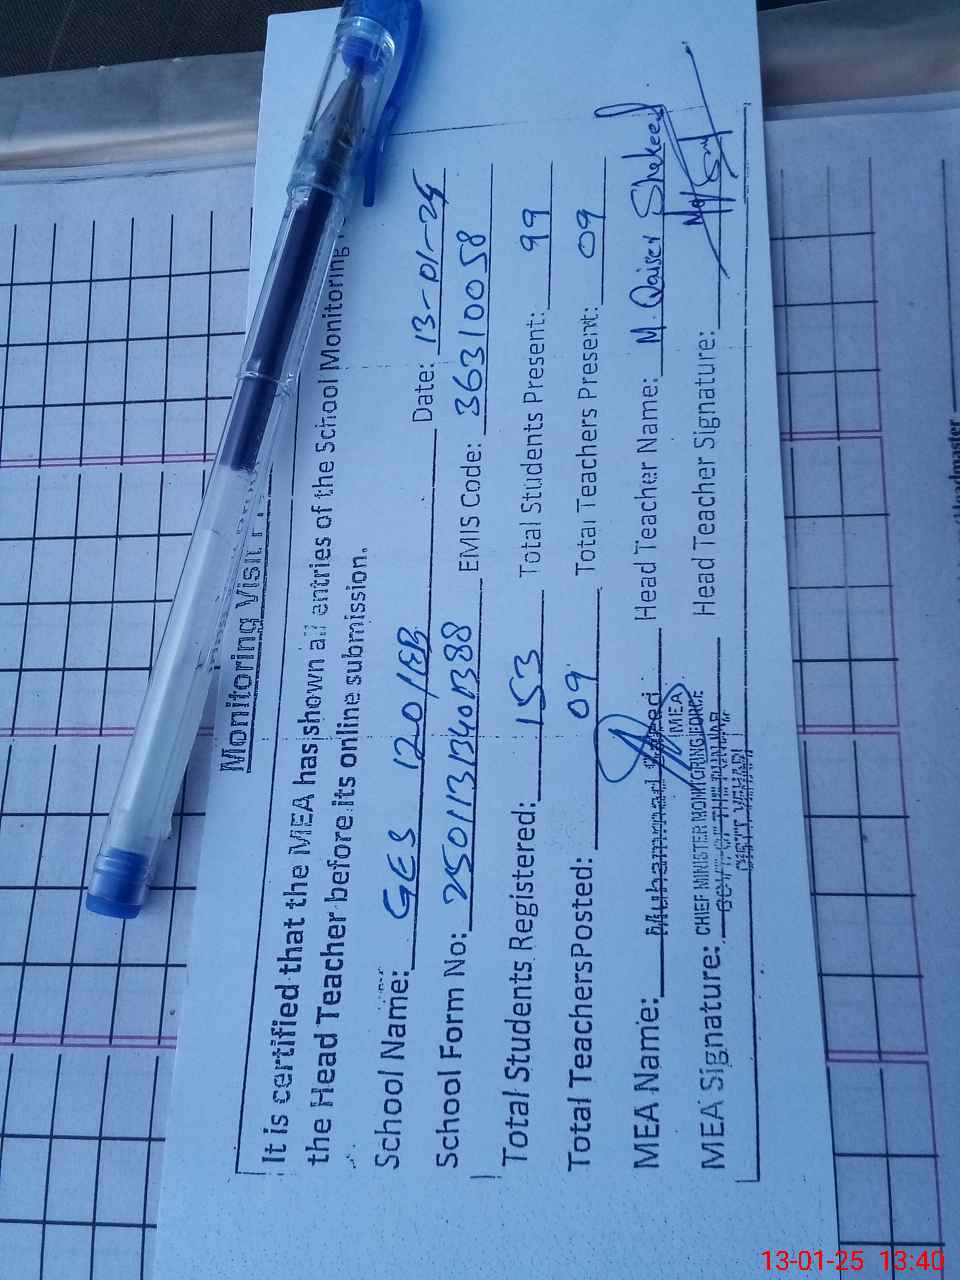 Monitoring Visit
It is certified that the MEA has shown all entries of the School Monitoring
the Head Teacher before its online submission.
School Name: GES 120/EB Date: 13-01-25
School Form No: EMIS Code: 36310058
Total Students Registered: 153 Total Students Present: 99
Total Teachers Posted: 09 Total Teachers Present: 09
MEA Name: Muhammad Head Teacher Name: M. Qaiser Shakeel
MEA
MEA Signature: CHIEF MINISTER MONITORING FORCE Head Teacher Signature:
GOVT. OF THE PUNJAB
DISTT. VEHARI
Headmaster
13-01-25 13:40